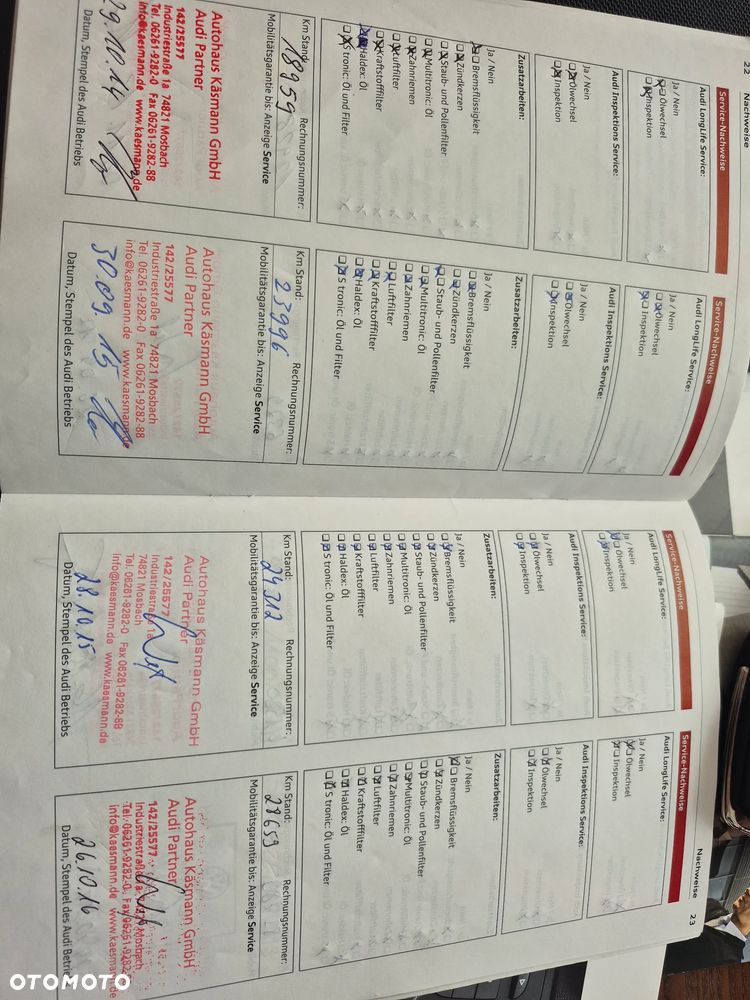 22
Nachweise
Service-Nachweise
Audi LongLife Service:
Ja / Nein
Ölwechsel
Inspektion
Audi Inspektions Service:
Ja / Nein
Ölwechsel
Inspektion
Zusatzarbeiten:
Ja / Nein
Bremsflüssigkeit
Zündkerzen
Staub- und Pollenfilter
Multitronic: Öl
Zahnriemen
Luftfilter
Kraftstofffilter
Haldex: Öl
S tronic: Öl und Filter
Km Stand:
Rechnungsnummer:
18959
Mobilitätsgarantie bis: Anzeige Service
Autohaus Käsmann GmbH
Audi Partner
142/25577
Industriestraße 1a 74821 Mosbach
Tel. 06261-9282-0 Fax 06261-9282-88
info@kaesmann.de www.kaesmann.de
29.10.14
Datum, Stempel des Audi Betriebs
Service-Nachweise
Audi LongLife Service:
Ja / Nein
Ölwechsel
Inspektion
Audi Inspektions Service:
Ja / Nein
Ölwechsel
Inspektion
Zusatzarbeiten:
Ja / Nein
Bremsflüssigkeit
Zündkerzen
Staub- und Pollenfilter
Multitronic: Öl
Zahnriemen
Luftfilter
Kraftstofffilter
Haldex: Öl
S tronic: Öl und Filter
Km Stand:
Rechnungsnummer:
23996
Mobilitätsgarantie bis: Anzeige Service
Autohaus Käsmann GmbH
Audi Partner
142/25577
Industriestraße 1a 74821 Mosbach
Tel. 06261-9282-0 Fax 06261-9282-88
info@kaesmann.de www.kaesmann.de
30.09.15
Datum, Stempel des Audi Betriebs
Service-Nachweise
Audi LongLife Service:
Ja / Nein
Ölwechsel
Inspektion
Audi Inspektions Service:
Ja / Nein
Ölwechsel
Inspektion
Zusatzarbeiten:
Ja / Nein
Bremsflüssigkeit
Zündkerzen
Staub- und Pollenfilter
Multitronic: Öl
Zahnriemen
Luftfilter
Kraftstofffilter
Haldex: Öl
S tronic: Öl und Filter
Km Stand:
Rechnungsnummer:
24312
Mobilitätsgarantie bis: Anzeige Service
Autohaus Käsmann GmbH
Audi Partner
142/25577
Industriestraße 1a
74821 Mosbach
Tel. 06261-9282-0 Fax 06261-9282-88
info@kaesmann.de www.kaesmann.de
28.10.15
Datum, Stempel des Audi Betriebs
Nachweise
23
Service-Nachweise
Audi LongLife Service:
Ja / Nein
Ölwechsel
Inspektion
Audi Inspektions Service:
Ja / Nein
Ölwechsel
Inspektion
Zusatzarbeiten:
Ja / Nein
Bremsflüssigkeit
Zündkerzen
Staub- und Pollenfilter
Multitronic: Öl
Zahnriemen
Luftfilter
Kraftstofffilter
Haldex: Öl
S tronic: Öl und Filter
Km Stand:
Rechnungsnummer:
28659
Mobilitätsgarantie bis: Anzeige Service
Autohaus Käsmann GmbH
Audi Partner
142/25577
Industriestraße 1a Mosbach
Tel.: 06261-9282-0 Fax 06261-9282-88
info@kaesmann.de www.kaesmann.de
26.10.16
Datum, Stempel des Audi Betriebs
OTOMOTO